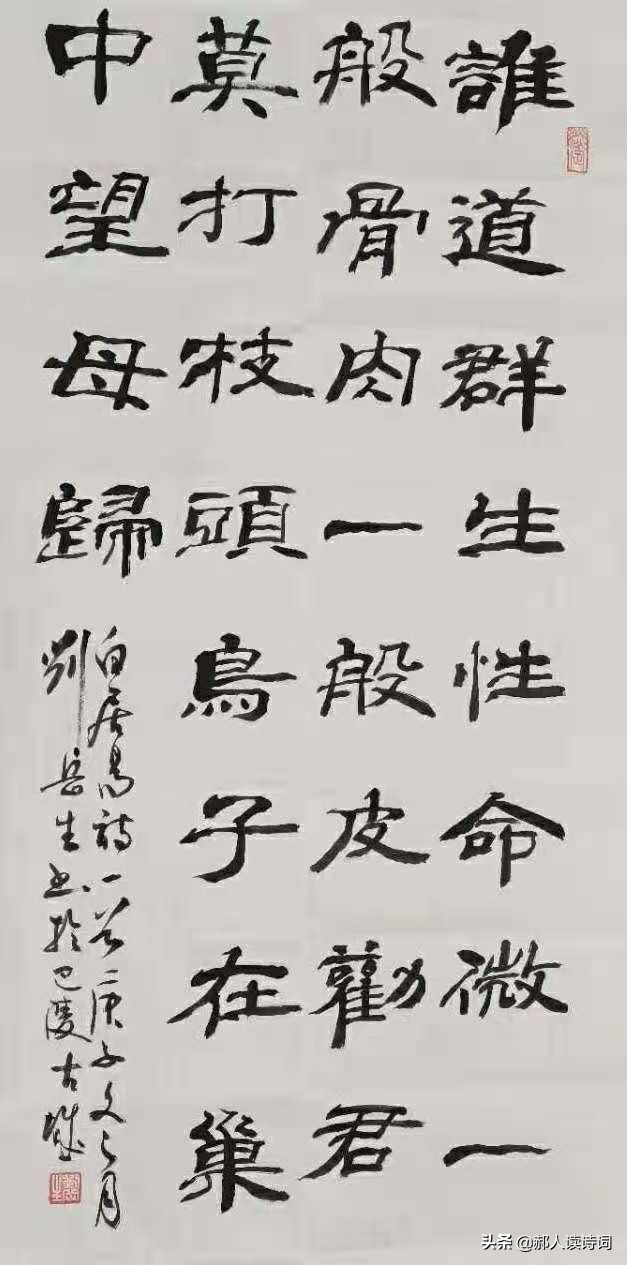 誰道群生性命微一
般骨肉一般皮勸君
莫打枝頭鳥子在巢
中望母歸
白居易詩一首庚子月
劉岳生书於巴陵古城
头条 @郝人读诗词